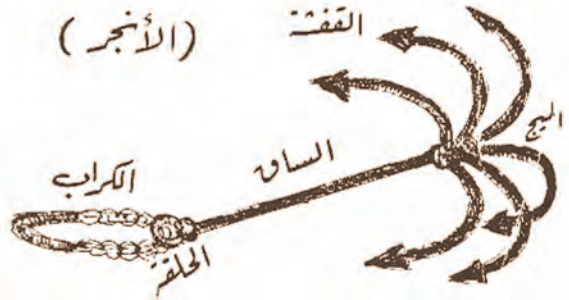 (الأنجر)
القفشة
الساق
الكراب
الحلقة